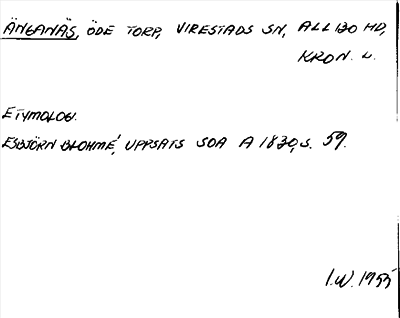 ÄNGANÄS, ÖDE TORP, VIRESTADS SN, ALLBO HD,
KRON. L.
ETYMOLOG.
ESBJÖRN BLOHMÉ, UPPSATS SOA A 1830, S. 59.
I.W. 1955